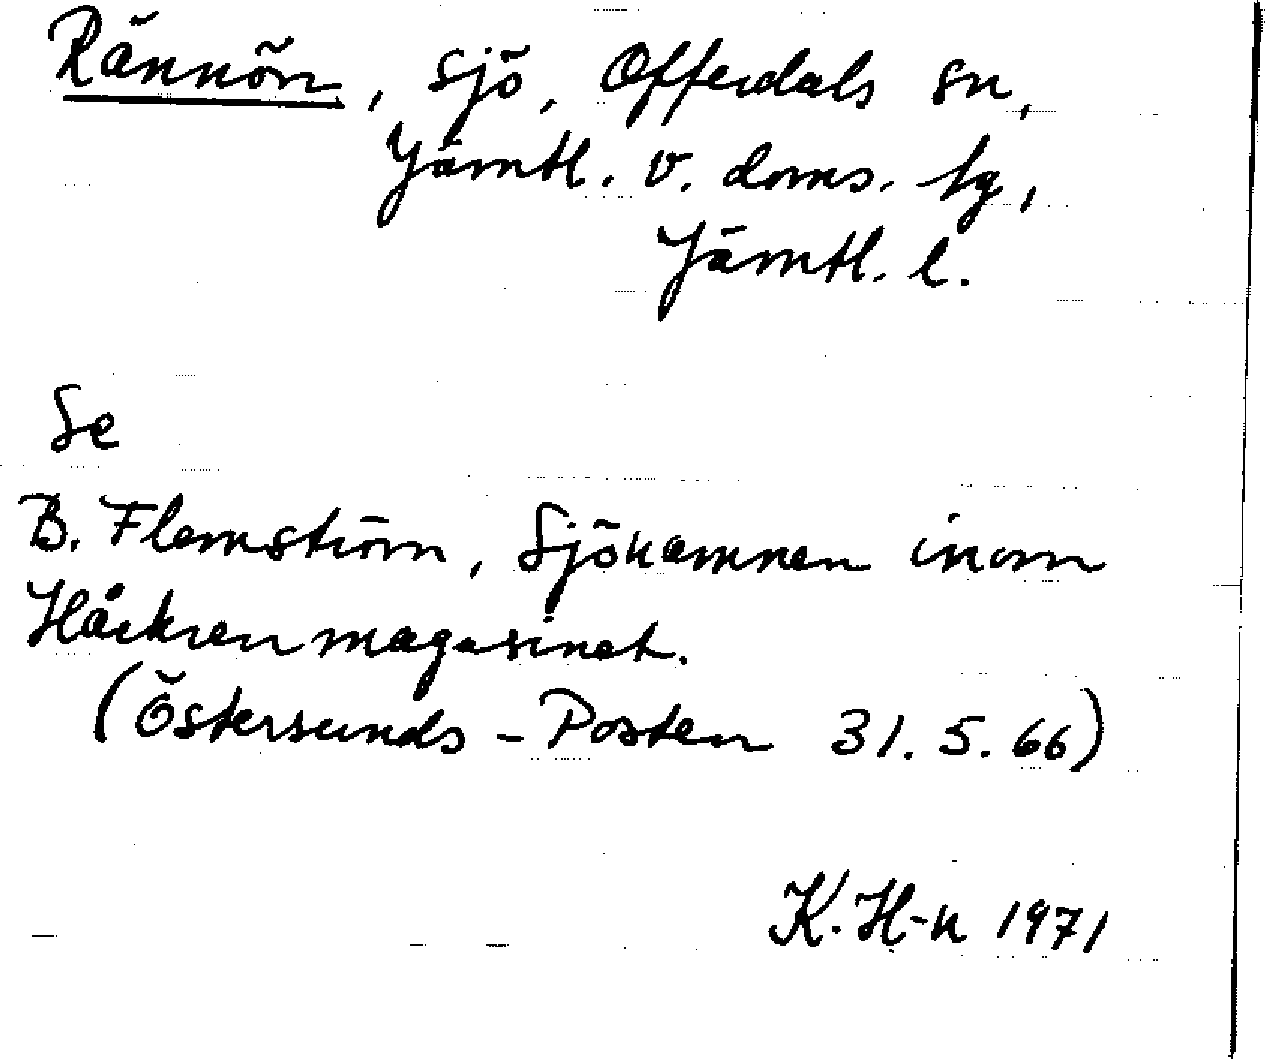 Rännön, sjö, Offerdals sn,
Jämtl. v. doms. tg,
Jämtl. l.
Se
B. Flemström, Sjönamnen inom
Håckren magasinet.
(Östersunds-Posten 31.5.66)
K. H-n 1971